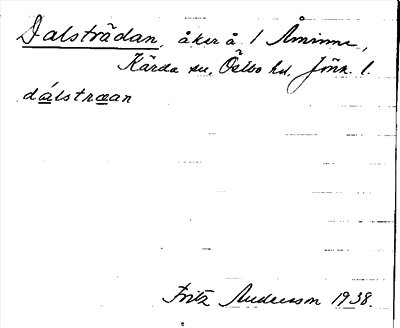 Dalsträdan, åker å 1 Åminne,
Kärda sn, Östbo hd, Jönk. l.
dálstræan
Fritz Andersson 1938.